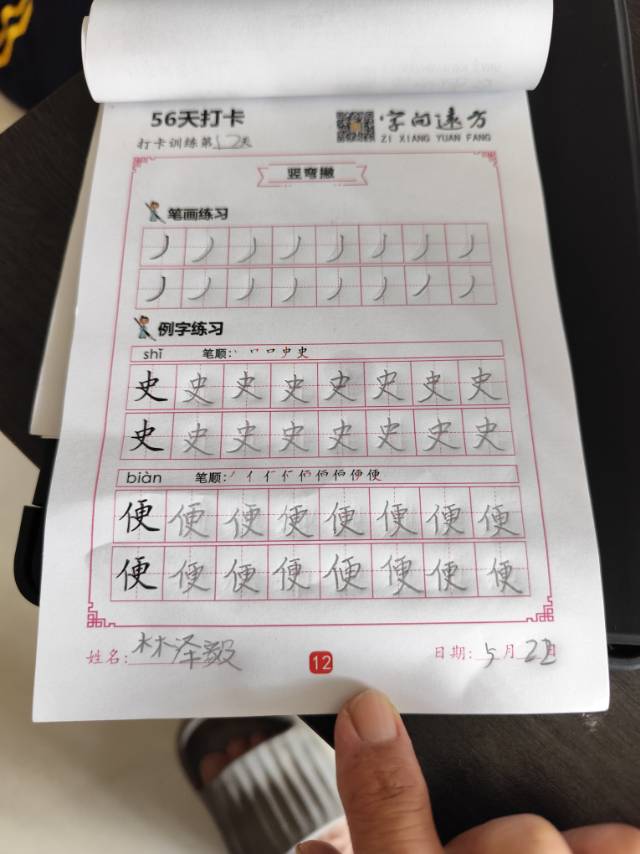 56天打卡
字向远方
ZI XIANG YUAN FANG
打卡训练第12天
竖弯撇
笔画练习
丿丿丿丿丿丿丿丿
丿丿丿丿丿丿丿丿
例字练习
shǐ 笔顺:
史史史史史史史史
史史史史史史史史
biàn 笔顺:
便便便便便便便便
便便便便便便便便
姓名:林泽毅
12
日期:5月22日